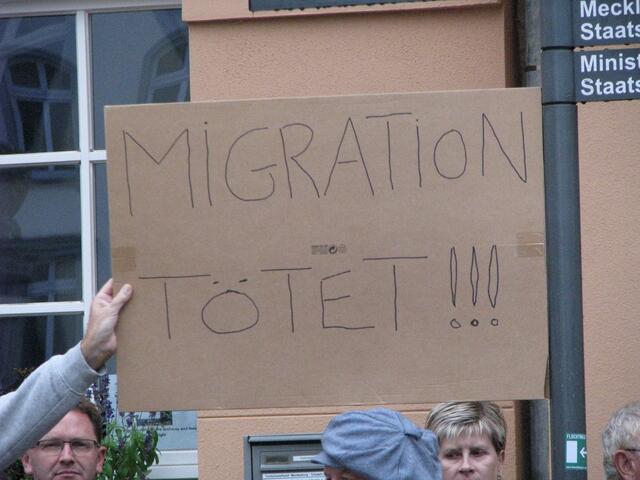 Meckl
Staats
Minist
Staats
MiGRATiON
TÖTET !!!